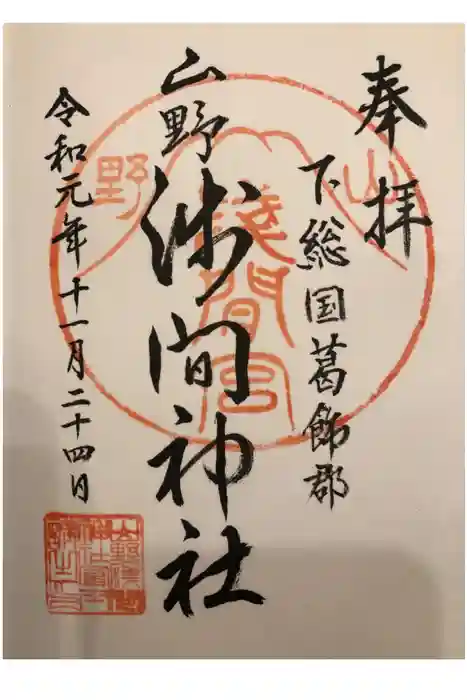 奉拝
下総国葛飾郡
山野浅間神社
令和元年十一月二十四日
山野
浅間宮